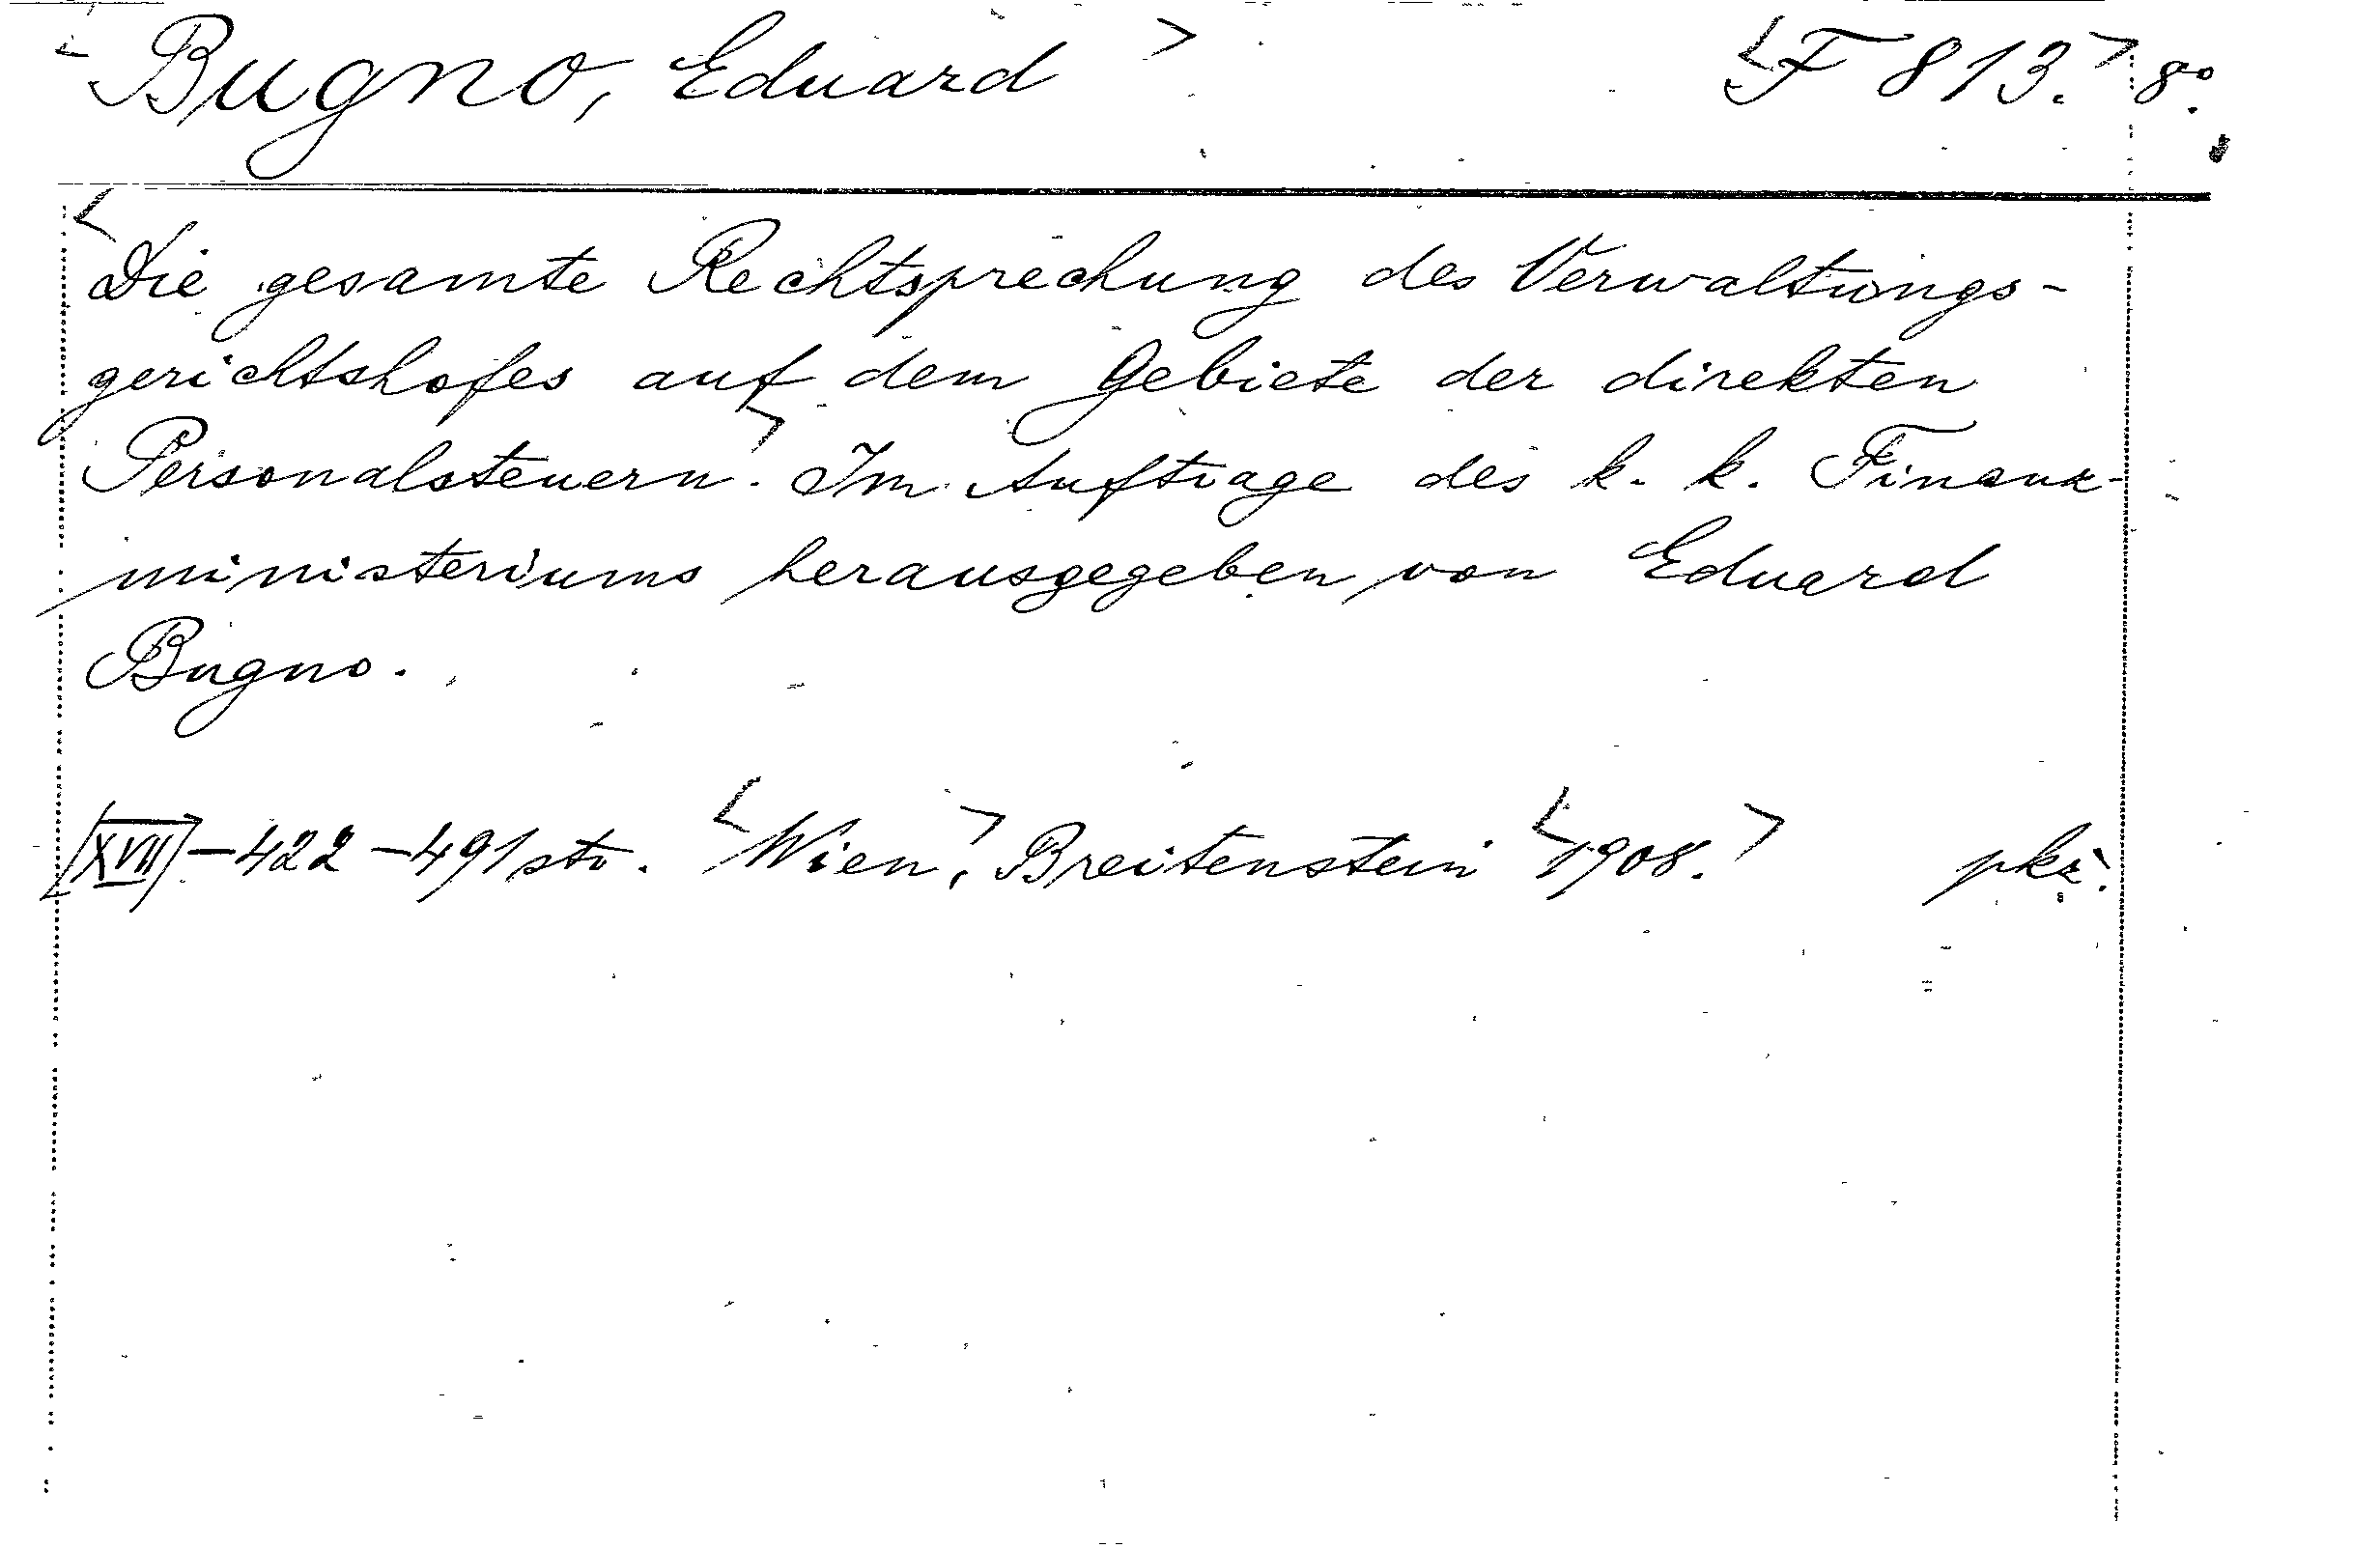 Bugno, Eduard <F 813.> 8°.
<Die gesamte Rechtsprechung des Verwaltungs-
gerichtshofes auf dem Gebiete der direkten
Personalsteuern.> Im Auftrage des k. k. Finanz-
ministeriums herausgegeben von Eduard
Bugno.
XVII-422-491 str. <Wien,> Breitenstein <1908.>